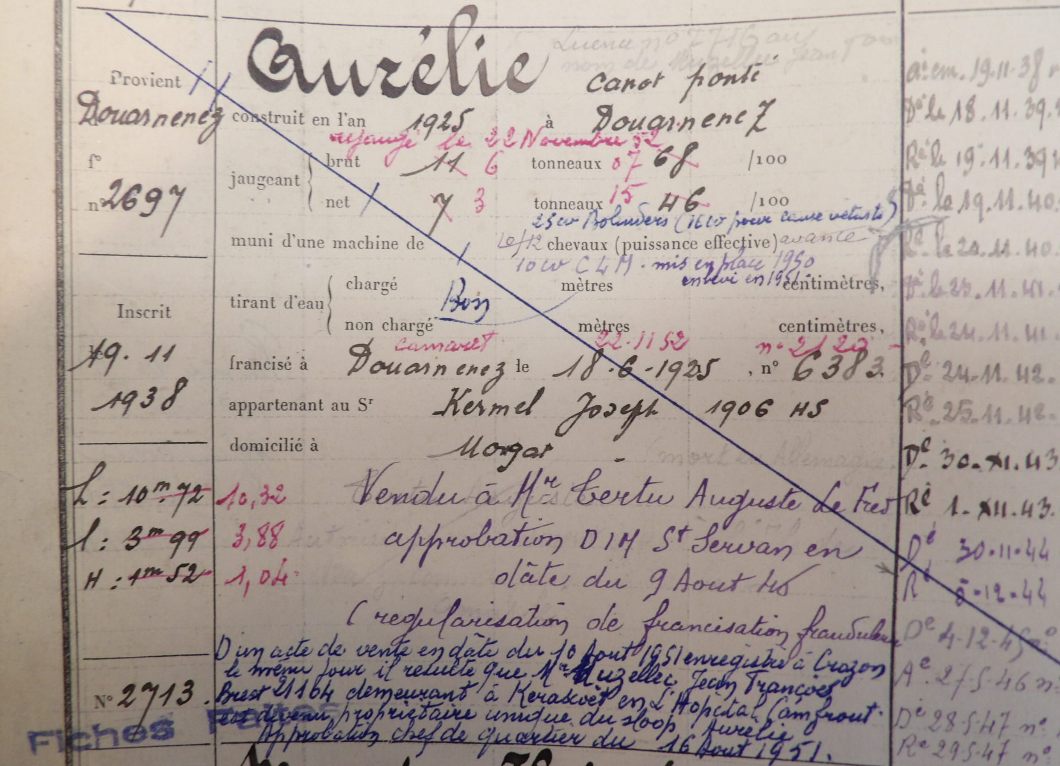 Aurélie
Canot ponté
Provient
Douarnenez
construit en l'an 1925 à Douarnenez
rejaugé le 22 Novembre 52
f°
n° 2697
jaugeant
brut 11 6 tonneaux 07 68 /100
net 7 3 tonneaux 15 46 /100
25 cv Bolinders (16 cv pour cause vétusté)
muni d'une machine de 10/12 chevaux (puissance effective) avance
10 cv C L M . mis en place 1950
enlevé en 1951.
tirant d'eau
chargé mètres centimètres,
Bois
non chargé mètres centimètres,
Inscrit
19. 11
1938
camaret 22.11 52 n° 2120
francisé à Douarnenez le 18-6-1925, n° 6383.
appartenant au Sr Kermel Joseph 1906 HS
domicilié à Morgat
L : 10m72 10,32
l : 3m99 3,88
H : 1m52 1,04
Vendu à Mr Certu Auguste Le Fret
approbation DIM St Servan en
dâte du 9 Aout 45
(régularisation de francisation frauduleuse
D'un acte de vente en dâte du 10 Aout 1951 enregistré à Crozon
le même jour il résulte que Mr Muzellec Jean François
Brest 21164 demeurant à Kerascoët en L'Hopital Camfrout.
est devenu propriétaire unique du sloop Aurélie
Approbation chef de quartier du 16 Aout 1951.
N° 2713.
Fiches Faites
am. 19.11.38
Dé le 18.11.39.
Ré le 19.11.39
Dé le 19.11.40.
Ré le 20.11.40.
Dé le 23.11.41.
Ré le 24.11.41.
Dé 24-11.42.
Ré 25.11.42.
Dé 30.XI.43
Ré 1.XII.43.
Dé 30.11.44
Ré 8-12-44
Dé 4-12-45
Aé 27-5-46 n°
Dé 28-5-47 n°
Ré 29.5.47 n°